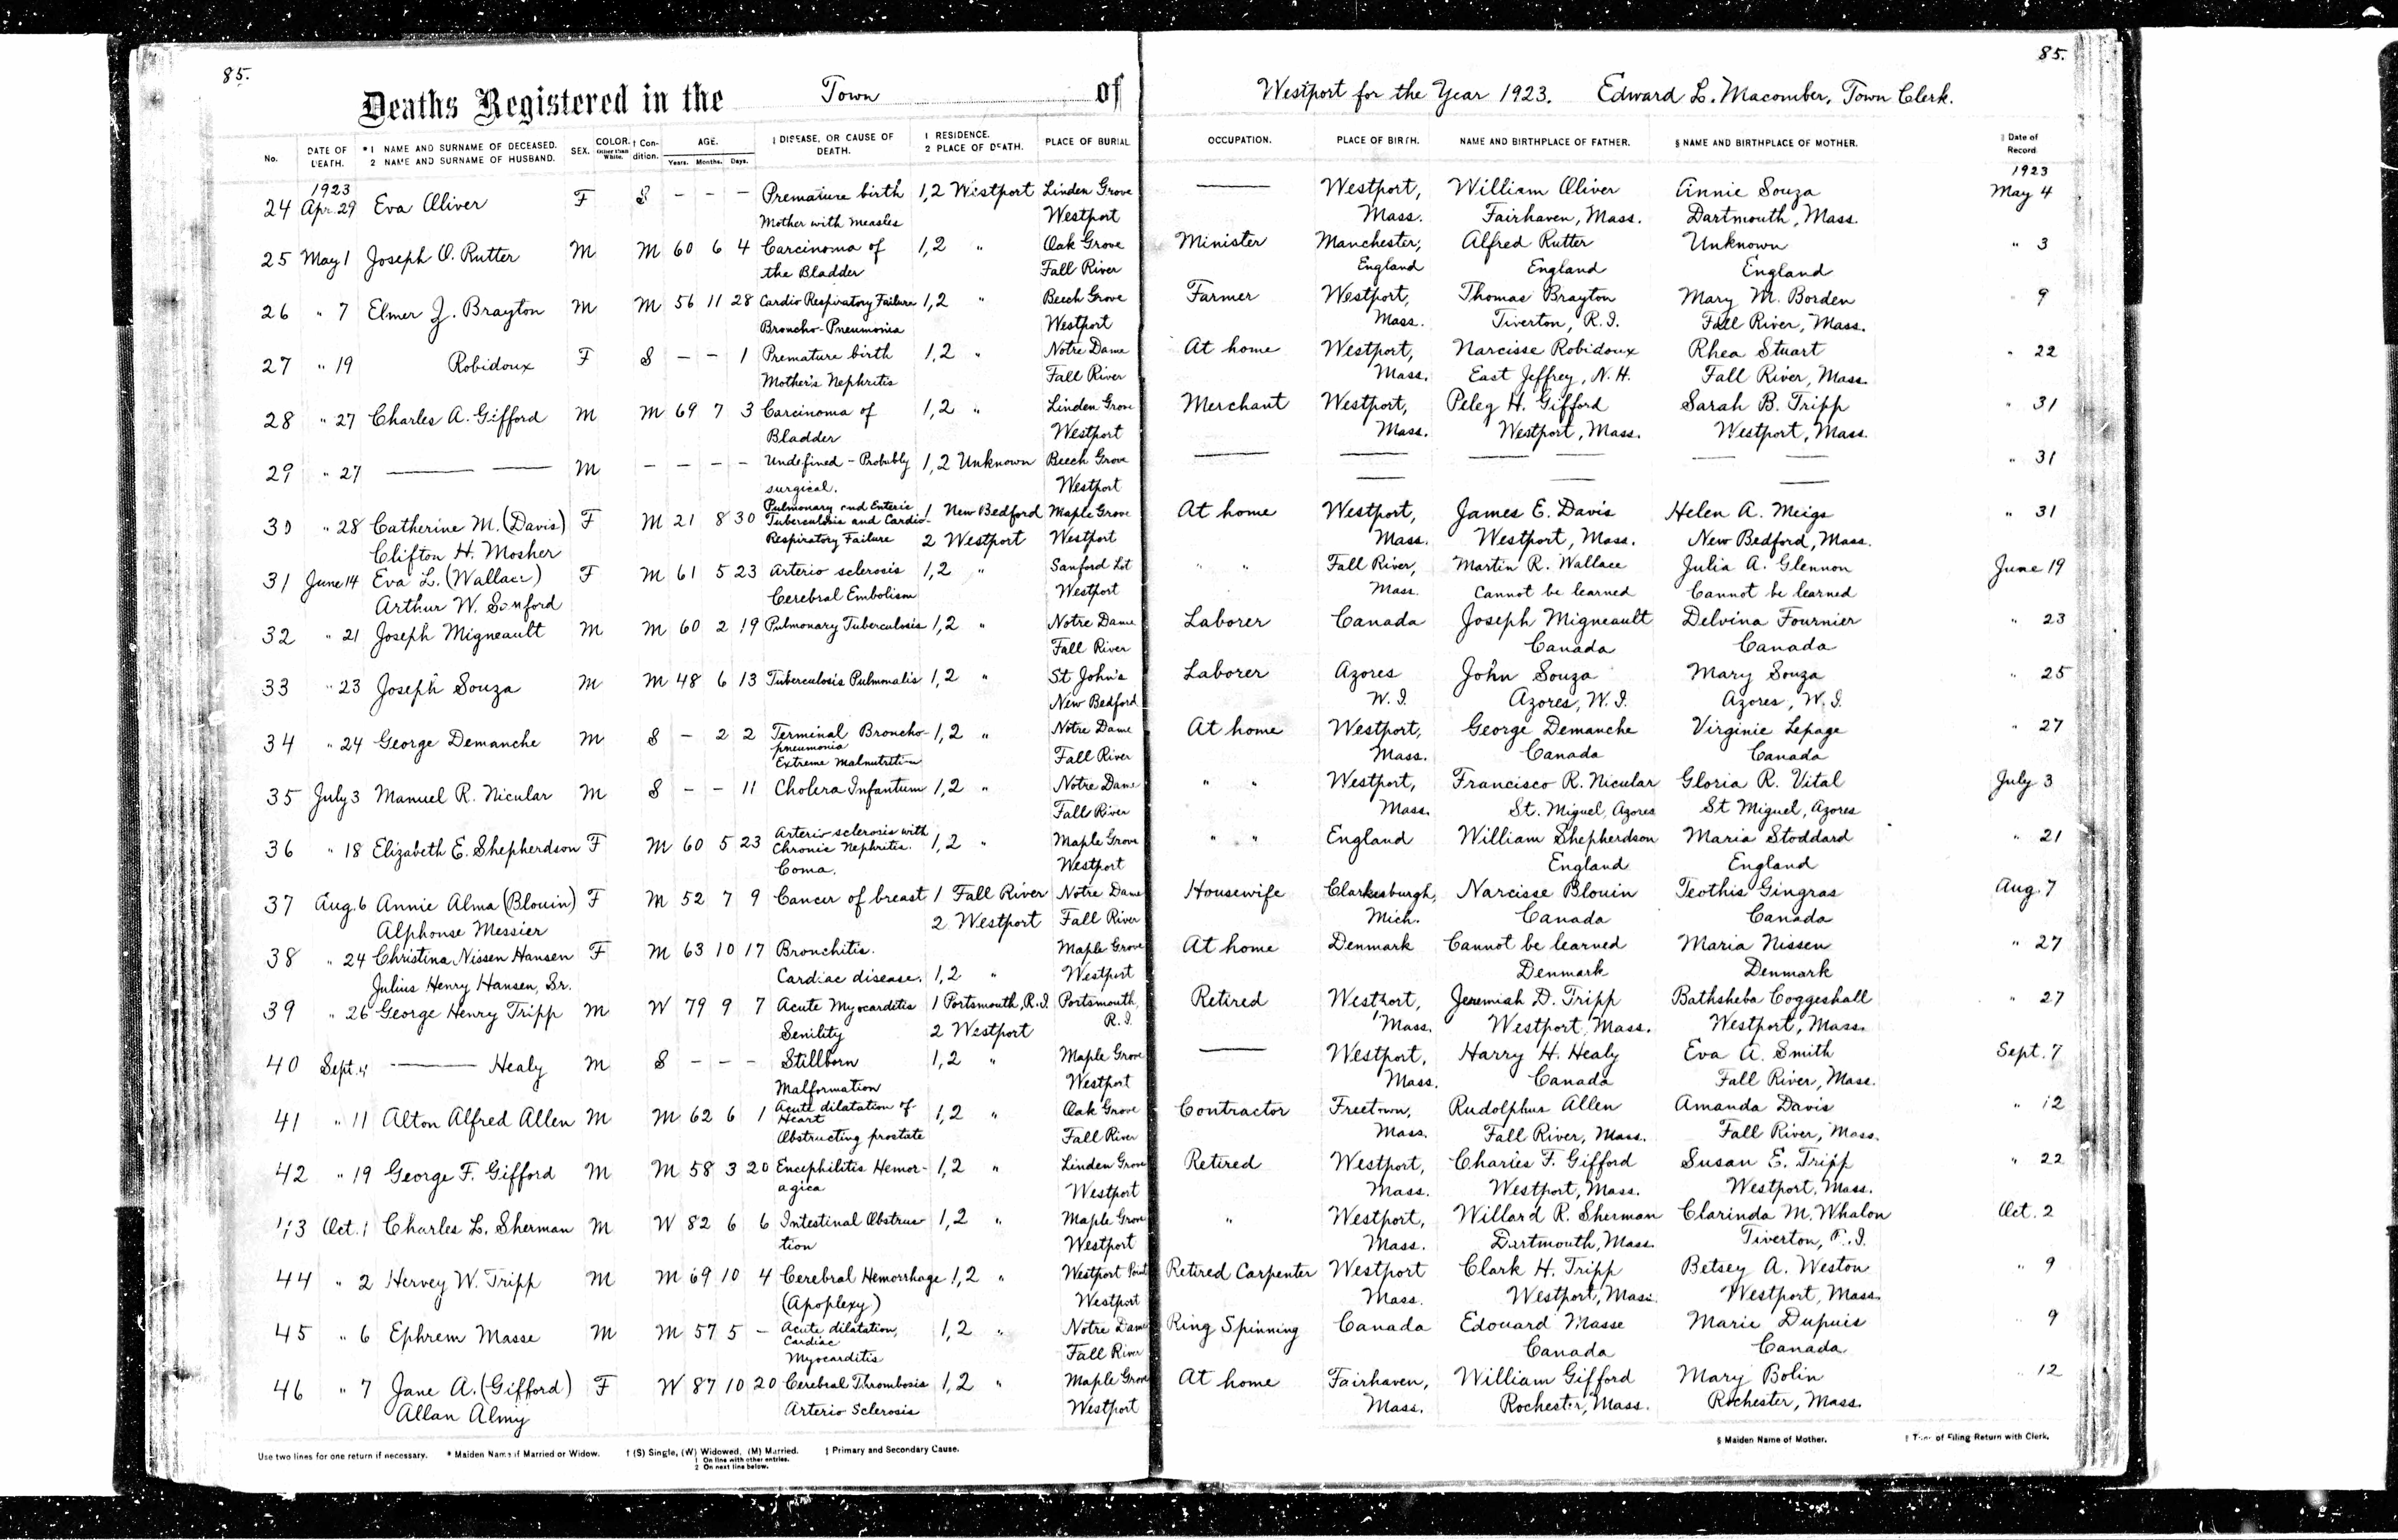 85.
85.
Deaths Registered in the Town of Westport for the Year 1923. Edward L. Macomber, Town Clerk.
No. DATE OF DEATH. *1 NAME AND SURNAME OF DECEASED. 2 NAME AND SURNAME OF HUSBAND. SEX. COLOR. Other than White. † Condition. AGE. Years. Months. Days. ‡ DISEASE, OR CAUSE OF DEATH. 1 RESIDENCE. 2 PLACE OF DEATH. PLACE OF BURIAL OCCUPATION. PLACE OF BIRTH. NAME AND BIRTHPLACE OF FATHER. § NAME AND BIRTHPLACE OF MOTHER. Date of Record.
1923 1923
24 Apr. 29 Eva Oliver F S - - - Premature birth 1,2 Westport Linden Grove — Westport, William Oliver Annie Souza May 4
Mother with measles Westport Mass. Fairhaven, Mass. Dartmouth, Mass.
25 May 1 Joseph O. Rutter M M 60 6 4 Carcinoma of 1,2 " Oak Grove Minister Manchester, Alfred Rutter Unknown " 3
the Bladder Fall River England England England
26 " 7 Elmer J. Brayton M M 56 11 28 Cardio Respiratory Failure 1,2 " Beech Grove Farmer Westport, Thomas Brayton Mary M. Borden " 9
Broncho-Pneumonia Westport Mass. Tiverton, R.I. Fall River, Mass.
27 " 19 Robidoux F S - - 1 Premature birth 1,2 " Notre Dame At home Westport, Narcisse Robidoux Rhea Stuart " 22
Mother's Nephritis Fall River Mass. East Jeffrey, N.H. Fall River, Mass.
28 " 27 Charles A. Gifford M M 69 7 3 Carcinoma of 1,2 " Linden Grove Merchant Westport, Peleg H. Gifford Sarah B. Tripp " 31
Bladder Westport Mass. Westport, Mass. Westport, Mass.
29 " 27 — — M - - - - Undefined - Probably 1,2 Unknown Beech Grove — — — — — — " 31
surgical. Westport — — —
30 " 28 Catherine M. (Davis) F M 21 8 30 Pulmonary and Enteric Tuberculosis and Cardio- 1 New Bedford Maple Grove At home Westport, James E. Davis Helen A. Meigs " 31
Clifton H. Mosher Respiratory Failure 2 Westport Westport Mass. Westport, Mass. New Bedford, Mass.
31 June 14 Eva L. (Wallace) F M 61 5 23 Arterio sclerosis 1,2 " Sanford Lot " " Fall River, Martin R. Wallace Julia A. Glennon June 19
Arthur W. Sanford Cerebral Embolism Westport Mass. Cannot be learned Cannot be learned
32 " 21 Joseph Migneault M M 60 2 19 Pulmonary Tuberculosis 1,2 " Notre Dame Laborer Canada Joseph Migneault Delvina Fournier " 23
Fall River Canada Canada
33 " 23 Joseph Souza M M 48 6 13 Tuberculosis Pulmonalis 1,2 " St John's Laborer Azores John Souza Mary Souza " 25
New Bedford W.I. Azores, W.I. Azores, W.I.
34 " 24 George Demanche M S - 2 2 Terminal Broncho-pneumonia 1,2 " Notre Dame At home Westport, George Demanche Virginie Lepage " 27
Extreme Malnutrition Fall River Mass. Canada Canada
35 July 3 Manuel R. Nicular M S - - 11 Cholera Infantum 1,2 " Notre Dame " " Westport, Francisco R. Nicular Gloria R. Vital July 3
Fall River Mass. St. Miguel, Azores St Miguel, Azores
36 " 18 Elizabeth E. Shepherdson F M 60 5 23 Arterio sclerosis with Chronic Nephritis. 1,2 " Maple Grove " " England William Shepherdson Maria Stoddard " 21
Coma. Westport England England
37 Aug. 6 Annie Alma (Blouin) F M 52 7 9 Cancer of breast 1 Fall River Notre Dame Housewife Clarkesburgh, Narcisse Blouin Teothis Gingras Aug. 7
Alphonse Messier 2 Westport Fall River Mich. Canada Canada
38 " 24 Christina Nissen Hansen F M 63 10 17 Bronchitis. Maple Grove At home Denmark Cannot be learned Maria Nissen " 27
Julius Henry Hansen, Sr. Cardiac disease. 1,2 " Westport Denmark Denmark
39 " 26 George Henry Tripp M W 79 9 7 Acute Myocarditis 1 Portsmouth, R.I. Portsmouth, Retired Westport, Jeremiah D. Tripp Bathsheba Coggeshall " 27
Senility 2 Westport R.I. Mass. Westport, Mass. Westport, Mass.
40 Sept. 4 — Healy M S - - - Stillborn 1,2 " Maple Grove — Westport, Harry H. Healy Eva A. Smith Sept. 7
Malformation Westport Mass. Canada Fall River, Mass.
41 " 11 Alton Alfred Allen M M 62 6 1 Acute dilatation of Heart 1,2 " Oak Grove Contractor Freetown, Rudolphus Allen Amanda Davis " 12
Obstructing prostate Fall River Mass. Fall River, Mass. Fall River, Mass.
42 " 19 George F. Gifford M M 58 3 20 Encephilitis Hemor- 1,2 " Linden Grove Retired Westport, Charles F. Gifford Susan E. Tripp " 22
agica Westport Mass. Westport, Mass. Westport, Mass.
43 Oct. 1 Charles L. Sherman M W 82 6 6 Intestinal Obstruc 1,2 " Maple Grove " Westport, Willard R. Sherman Clarinda M. Whalon Oct. 2
tion Westport Mass. Dartmouth, Mass. Tiverton, R.I.
44 " 2 Hervey W. Tripp M M 69 10 4 Cerebral Hemorrhage 1,2 " Westport Point Retired Carpenter Westport Clark H. Tripp Betsey A. Weston " 9
(Apoplexy) Westport Mass. Westport, Mass. Westport, Mass.
45 " 6 Ephrem Masse M M 57 5 - Acute dilatation, Cardiac 1,2 " Notre Dame Ring Spinning Canada Edouard Masse Marie Dupuis " 9
Myocarditis Fall River Canada Canada
46 " 7 Jane A. (Gifford) F W 87 10 20 Cerebral Thrombosis 1,2 " Maple Grove At home Fairhaven, William Gifford Mary Bolin " 12
Allan Almy Arterio Sclerosis Westport Mass. Rochester, Mass. Rochester, Mass.
Use two lines for one return if necessary. * Maiden Name if Married or Widow. † (S) Single, (W) Widowed, (M) Married. ‡ Primary and Secondary Cause. § Maiden Name of Mother. of Filing Return with Clerk.
1 On line with other entries.
2 On next line below.